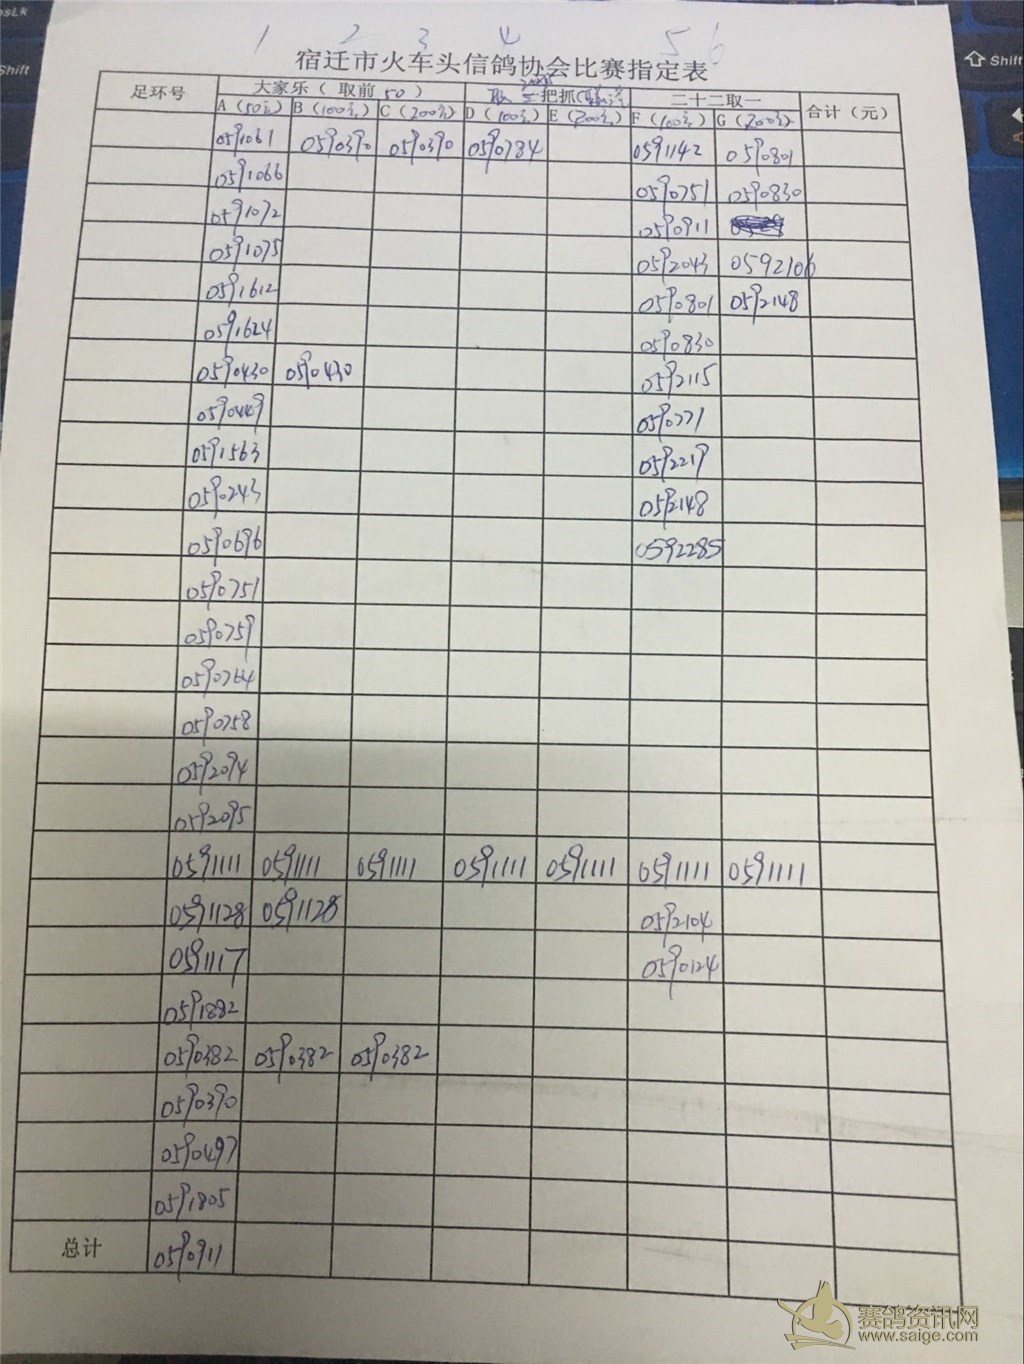 1 2 3 4 5 6
宿迁市火车头信鸽协会比赛指定表
足环号 大家乐（取前50） 一把抓 二十二取一 合计（元）
A（50元） B（100元） C（200元） D（100元） E（200元） F（100元） G（200元）
0591061 0590390 0590390 0590784 0591142 0590801
0591066 0590751 0590830
0591072 0590911
0591075 0592043 0592106
0591612 0590801 0592148
0591624 0590830
0590430 0590430 0592115
0590449 0590771
0591563 0592219
0590243 0592148
0590696 0592285
0590751
0590759
0590764
0590758
0592094
0592095
0591111 0591111 0591111 0591111 0591111 0591111 0591111
0591128 0591128 0592104
0591117 0590124
0591882
0590382 0590382 0590382
0590390
0590497
0591805
总计 0590911
赛鸽资讯网
www.saige.com
Shift
Shift